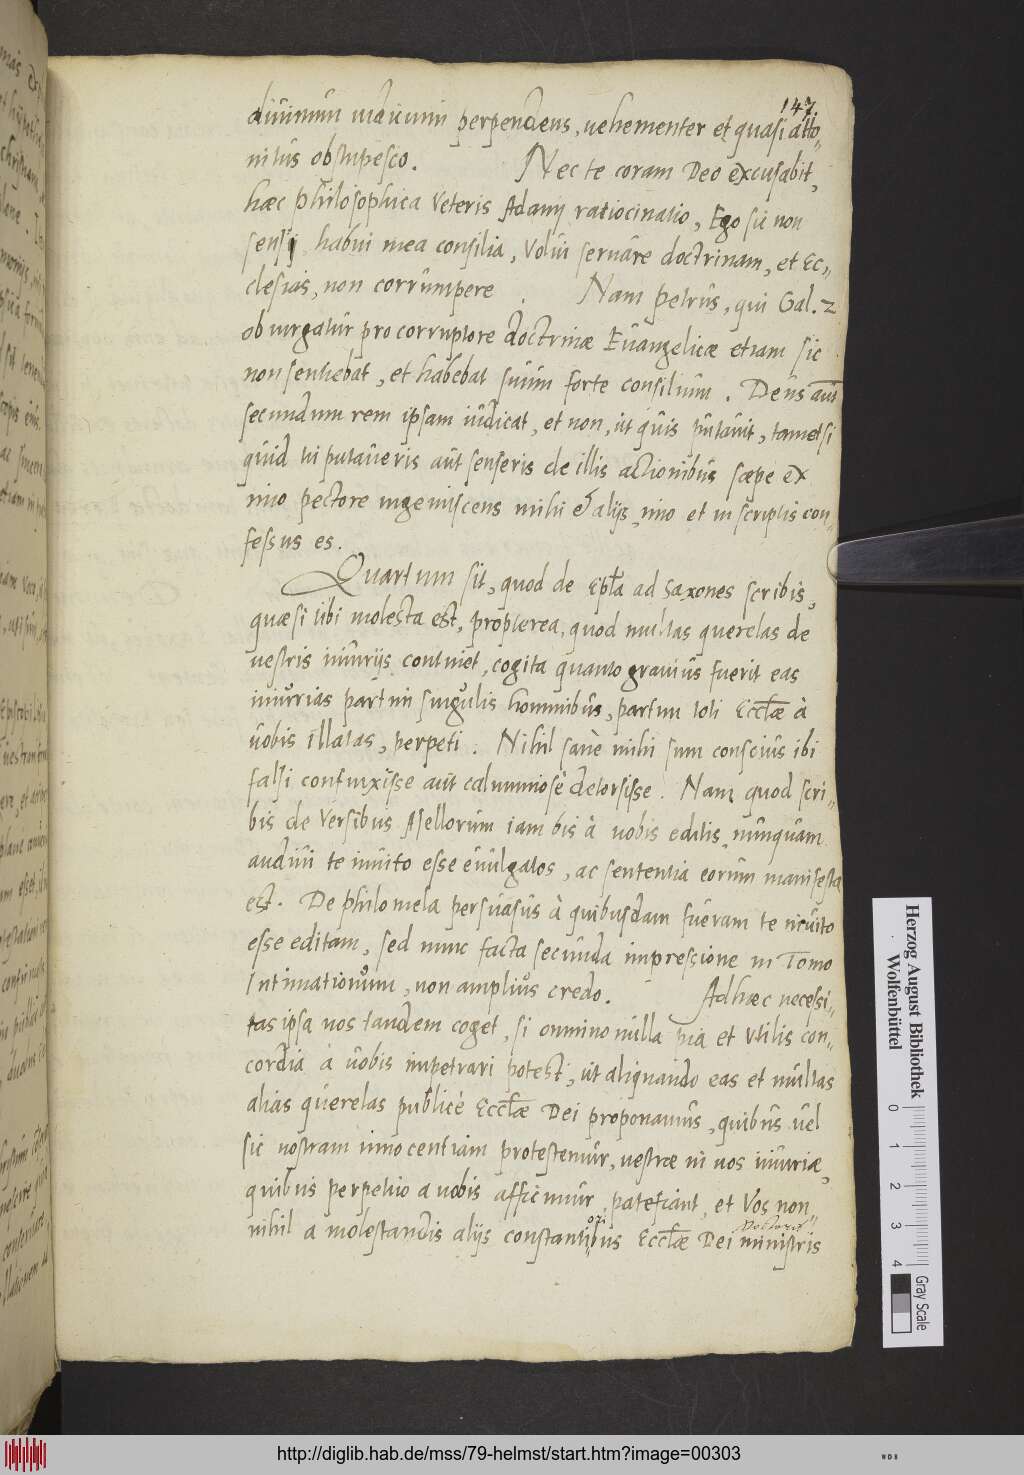 147.
diuinum iudicium perpendens, uehementer et quasi atto„
nitus obstupesco. Nec te coram Deo excusabit,
hæc philosophica Veteris Adami ratiocinatio, Ego sic non
sensi, habui mea consilia, Volui seruare doctrinam, et Ec„
clesias, non corrumpere. Nam Petrus, qui Gal. 2
obiurgatur pro corruptore doctrinæ Euangelicæ etiam sic
non sentiebat, et habebat suum forte consilium. Deus aut
secundum rem ipsam iudicat, et non, ut quis putauit, tametsi
quid tu putaueris aut senseris de illis actionibus sæpe ex
imo pectore ingemiscens mihi & alijs, imo et in scriptis con„
fessus es.
Quartum sit, quod de Epla ad Saxones scribis,
quæ si tibi molesta est, propterea, quod multas querelas de
uestris iniurijs continet, cogita quanto grauius fuerit eas
iniurias partim singulis hominibus, partim toti Ecclæ à
uobis illatas, perpeti. Nihil sanè mihi sum conscius ibi
falsi confinxisse aut calumniosè detorsisse. Nam quod scri„
bis de Versibus Asellorum iam bis à uobis editis, nunquam
audiui te inuito esse euulgatos, ac sententia eorum manifesta
est. De philomela persuasus à quibusdam fueram te inuito
esse editam, sed nunc facta secunda impressione in Tomo
Intimationum, non amplius credo. Ad hæc necessi„
tas ipsa nos tandem coget, si omnino nulla pia et utilis con„
cordia à uobis impetrari potest, ut aliquando eas et multas
alias querelas publicè Ecclæ Dei proponamus, quibus uel
sic nostram innocentiam protestemur, uestræ in nos iniuriæ,
quibus perpetuo a uobis afficimur, patefiant, et Vos non„
nihil a molestandis alijs constantioribus Ecclæ Dei ministris
Herzog August Bibliothek
Wolfenbüttel
0 1 2 3 4
Gray Scale
http://diglib.hab.de/mss/79-helmst/start.htm?image=00303